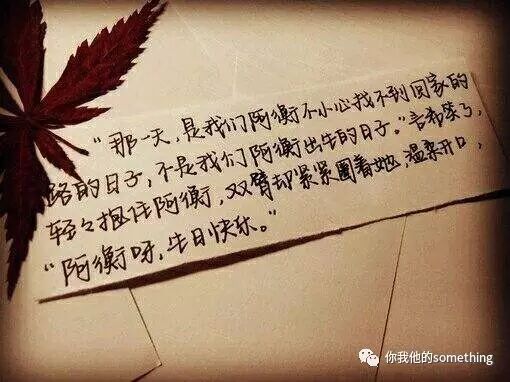 “那一天,是我们阿衡不小心找不到回家的
路的日子,不是我们阿衡出生的日子。”言希笑了,
轻轻抱住阿衡,双臂却紧紧圈着她,温柔开口,
“阿衡呀,生日快乐。”
你我他的something